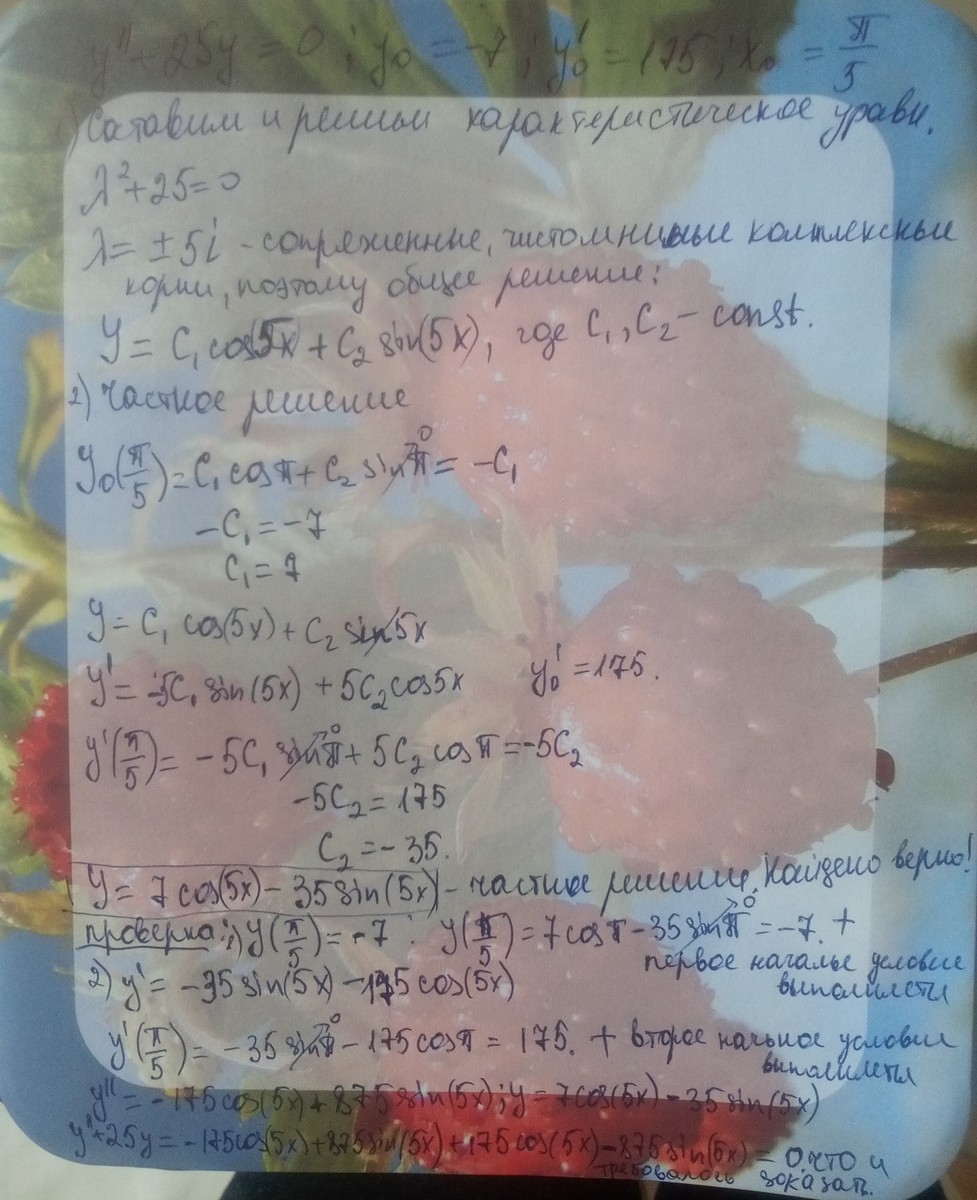 y'' + 25y = 0 ; y₀ = -7 ; y₀' = 175 ; x₀ = π/5
1) Составим и решим характеристическое уравн.
λ² + 25 = 0
λ = ± 5i - сопряженные, чистомнимые комплексные
корни, поэтому общее решение:
y = C₁ cos(5x) + C₂ sin(5x), где C₁, C₂ - const.
2) Частное решение
y₀(π/5) = C₁ cos π + C₂ sin π →0 = -C₁
-C₁ = -7
C₁ = 7
y = C₁ cos(5x) + C₂ sin 5x
y' = -5C₁ sin(5x) + 5C₂ cos 5x y₀' = 175.
y'(π/5) = -5C₁ sin π →0 + 5C₂ cos π = -5C₂
-5C₂ = 175
C₂ = -35.
y = 7 cos(5x) - 35 sin(5x) - частное решение. Найдено верно!
проверка: 1) y(π/5) = -7 : y(π/5) = 7 cos π - 35 sin π →0 = -7. +
первое начальное условие
выполняется
2) y' = -35 sin(5x) - 175 cos(5x)
y'(π/5) = -35 sin π →0 - 175 cos π = 175. + второе начальное условие
выполняется
y'' = -175 cos(5x) + 875 sin(5x) ; y = 7 cos(5x) - 35 sin(5x)
y'' + 25y = -175 cos(5x) + 875 sin(5x) + 175 cos(5x) - 875 sin(5x) = 0. что и
требовалось доказать.